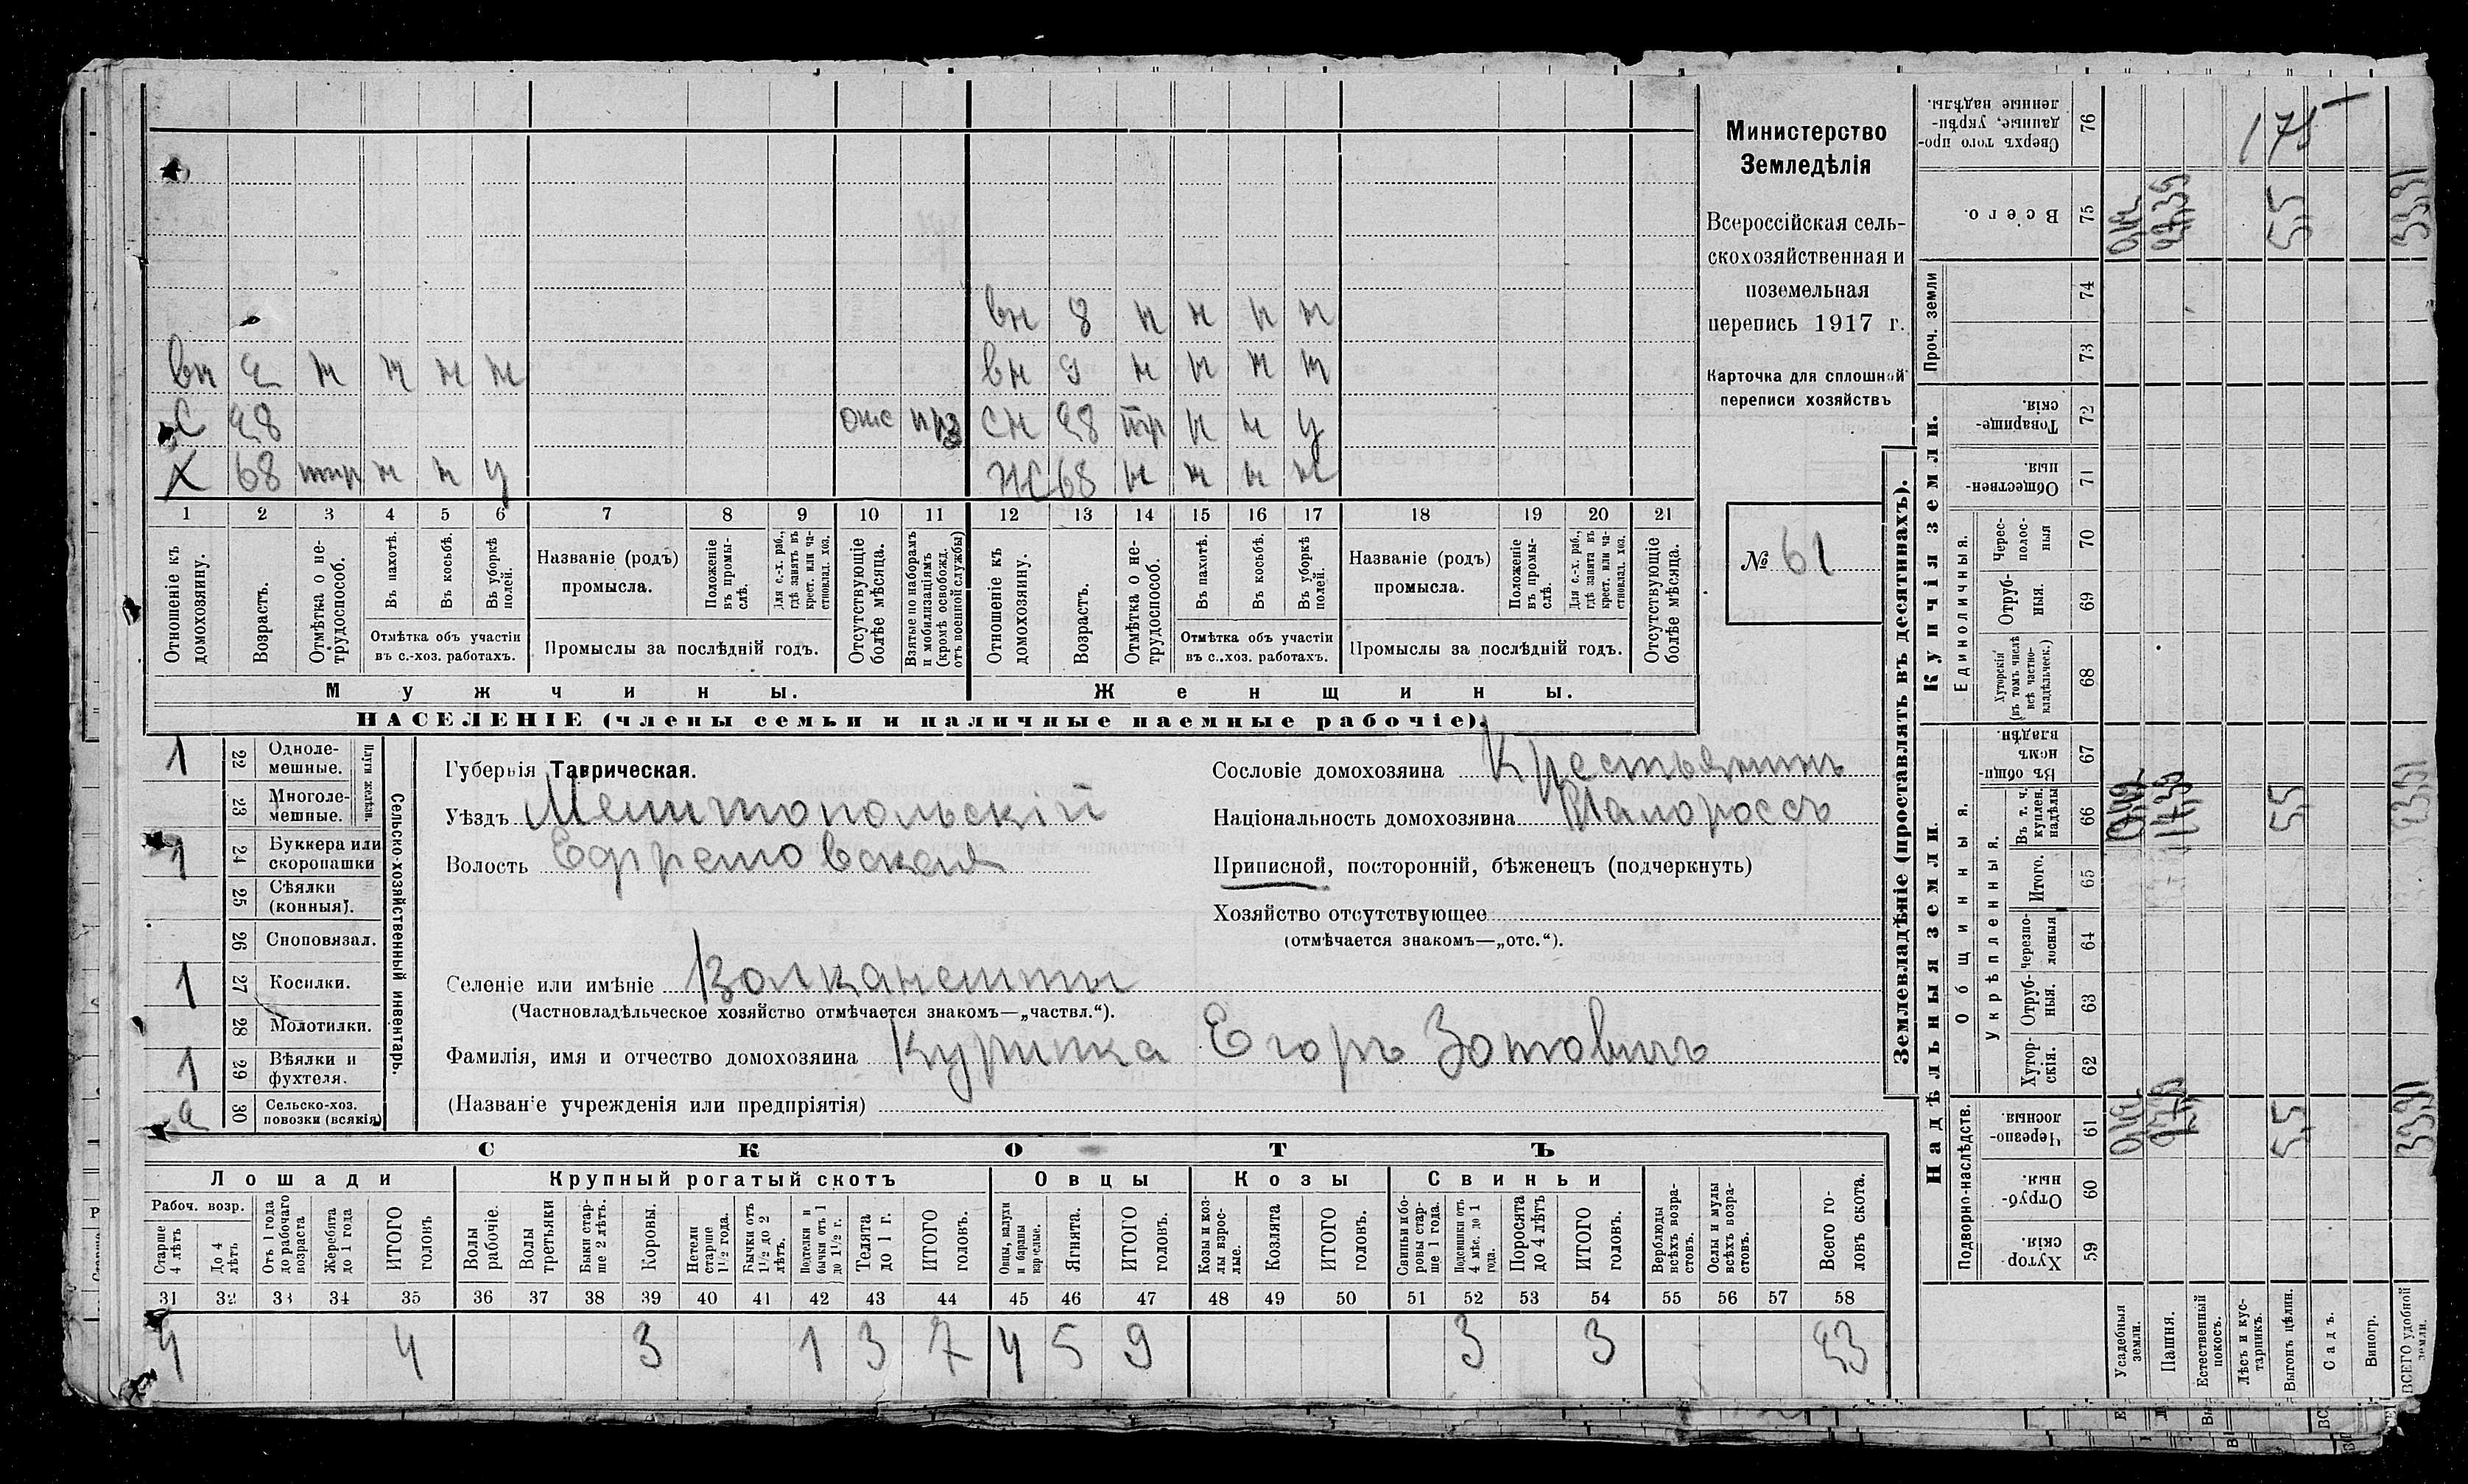 Министерство
Земледѣлія
Всероссійская сель-
скохозяйственная и
поземельная
перепись 1917 г.
Карточка для сплошной
переписи хозяйствъ
№ 61
вн 8 н н н н
вн 2 н н н н вн 9 н н н н
С 28 отс сн 28 тр н н у
Х 68 тр н н у ж 68 н н н н
1 2 3 4 5 6 7 8 9 10 11 12 13 14 15 16 17 18 19 20 21
Отношеніе къ домохозяину.
Возрастъ.
Отмѣтка о не-трудоспособ.
Въ пахотѣ.
Въ косьбѣ.
Въ уборкѣ полей.
Отмѣтка объ участіи
въ с.-хоз. работахъ.
Названіе (родъ)
промысла.
Положеніе въ промы-слѣ.
Для с.-х. раб., гдѣ занятъ въ крест. или ча-стновлад. хоз.
Промыслы за послѣдній годъ.
Отсутствующіе болѣе мѣсяца.
Взятые по наборамъ и мобилизаціямъ (кромѣ освобожд. отъ военной службы)
Отношеніе къ домохозяину.
Возрастъ.
Отмѣтка о не-трудоспособ.
Въ пахотѣ.
Въ косьбѣ.
Въ уборкѣ полей.
Отмѣтка объ участіи
въ с.-хоз. работахъ.
Названіе (родъ)
промысла.
Положеніе въ промы-слѣ.
Для с.-х. раб., гдѣ занята въ крест. или ча-стновлад. хоз.
Промыслы за послѣдній годъ.
Отсутствующіе болѣе мѣсяца.
Мужчины. Женщины.
НАСЕЛЕНІЕ (члены семьи и наличные наемные рабочіе).
Сельско-хозяйственный инвентарь.
Плуги желѣзн.
1 22 Одноле-мешные.
23 Многоле-мешные.
1 24 Буккера или скоропашки
25 Сѣялки (конныя).
26 Сноповязал.
1 27 Косилки.
28 Молотилки.
1 29 Вѣялки и фухтеля.
2 30 Сельско-хоз. повозки (всякія)
Губернія Таврическая.
Уѣздъ Мелитопольскій
Волость Ефремовская
Селеніе или имѣніе Волканешты
(Частновладѣльческое хозяйство отмѣчается знакомъ—„частвл.“).
Фамилія, имя и отчество домохозяина Курипка Егоръ Зотовичъ
(Названіе учрежденія или предпріятія)
Сословіе домохозяина Крестьянинъ
Національность домохозяина Малороссъ
Приписной, посторонній, бѣженецъ (подчеркнуть)
Хозяйство отсутствующее
(отмѣчается знакомъ—„отс.“).
СКОТЪ
Лошади Крупный рогатый скотъ Овцы Козы Свиньи
Рабоч. возр.
Старше 4 лѣтъ
До 4 лѣтъ
Отъ 1 года до рабочаго возраста
Жеребята до 1 года
ИТОГО головъ
Волы рабочіе.
Волы третьяки
Быки стар-ше 2 лѣтъ.
Коровы.
Нетели старше 1½ года.
Бычки отъ 1½ до 2 лѣтъ.
Подтелки и бычки отъ 1 до 1½ г.
Телята до 1 г.
ИТОГО головъ.
Овцы, валухи и бараны взрослые.
Ягнята.
ИТОГО головъ.
Козы и коз-лы взрос-лые.
Козлята
ИТОГО головъ.
Свиньи и бо-ровы стар-ше 1 года.
Подсвинки отъ 4 мѣс. до 1 года.
Поросята до 4 лѣтъ
ИТОГО головъ.
Верблюды всѣхъ возра-стовъ.
Ослы и мулы всѣхъ возра-стовъ.
Всего го-ловъ скота.
31 32 33 34 35 36 37 38 39 40 41 42 43 44 45 46 47 48 49 50 51 52 53 54 55 56 57 58
4 4 3 1 3 7 4 5 9 3 3 23
Землевладѣніе (проставлять въ десятинахъ).
Надѣльныя земли
Подворно-наслѣдств.
59 Хутор-скія.
60 Отруб-ныя.
61 Черезпо-лосныя
Общинныя.
Укрѣпленныя.
62 Хутор-скія.
63 Отруб-ныя.
64 Черезпо-лосныя
65 Итого.
66 Въ т. ч. куплен. надѣлы
67 Въ общи-номъ владѣн.
Купчія земли.
Единоличныя.
68 Хуторскія (въ томъ числѣ всѣ частно-владѣльческ.)
69 Отруб-ныя.
70 Черес-полос-ныя
71 Обществен-ныя
72 Товарище-скія.
Проч. земли
73
74
75 Всего.
76 Сверхъ того про-данные, укрѣп-ленные надѣлы.
Усадебныя земли.
Пашня.
Естественный покосъ.
Лѣсъ и кус-тарникъ.
Выгонъ цѣлин. 5,5 5,5 5,5 175
Садъ.
Виногр.
ВСЕГО удобной земли.